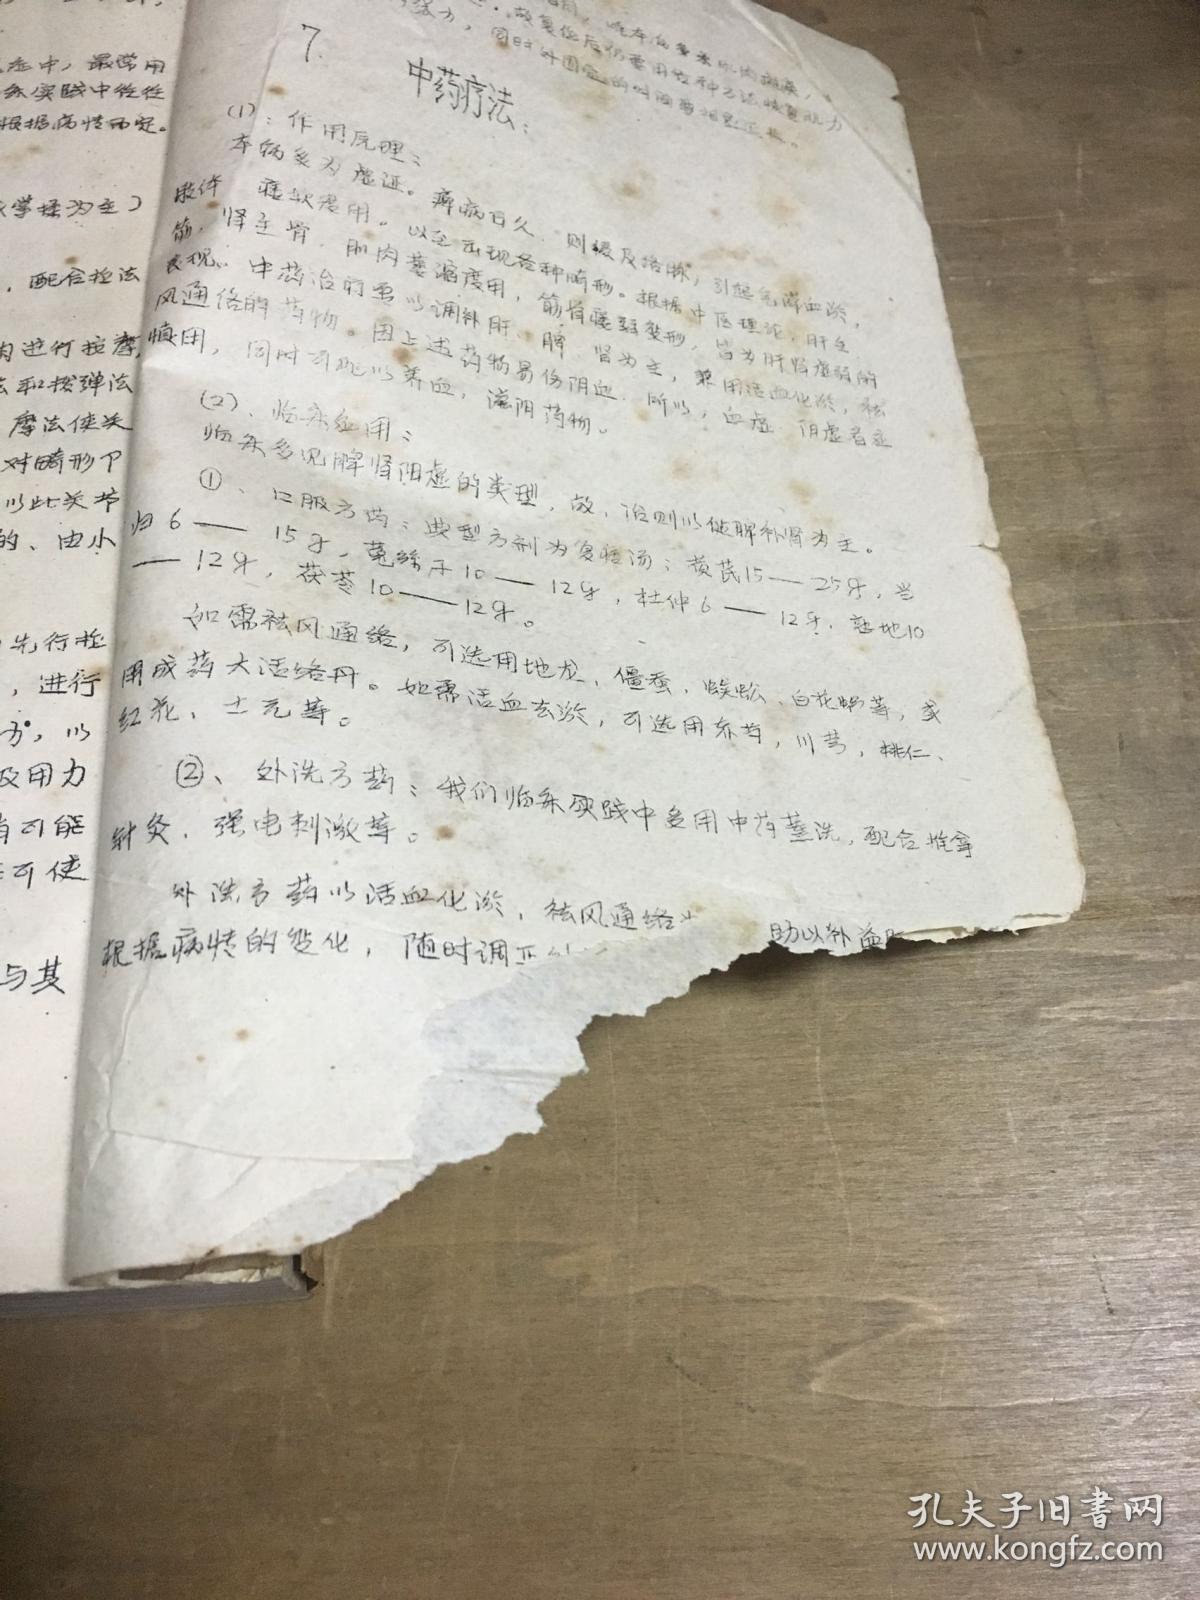 症中，最常用
临床实践中往往
根据病情而定。
掌揉为主）
，配合拉法
肉进行按摩，
法和按弹法
摩法使关
对畸形下
以此关节
的、由小
先行拉
，进行
方，以
及用力
有可能
可使
与其
同时外固定的时间要相应延长。
7. 中药疗法：
(1)：作用原理：
本病多为虚证。痹病日久，则缓及络脉，引起气滞血淤，
肢体痿软废用。以至出现各种畸形。根据中医理论，肝主
筋，肾主骨，肌肉萎缩废用，筋骨痿弱变形，皆为肝肾虚弱的
表现。中药治疗要以调补肝、脾、肾为主，兼用活血化淤，祛
风通络的药物。因上述药物易伤阴血，所以，血虚、阴虚者应
慎用，同时可配以养血，滋阴药物。
(2)、临床应用：
临床多见脾肾阳虚的类型，故，治则以健脾补肾为主。
①、口服方药：典型方剂为复痿汤：黄芪15——25g，当
归6——15g，菟絲子10——12g，杜仲6——12g，熟地10
——12g，茯苓10——12g。
如需祛风通络，可选用地龙、僵蚕，蜈蚣、白花蛇等，或
用成药大活络丹。如需活血去淤，可选用赤芍，川芎，桃仁、
红花、土元等。
②、外洗方药：我们临床实践中多用中药薰洗，配合推拿
针灸．强电刺激等。
外洗方药以活血化淤，祛风通络 助以补益
根据病情的变化，随时调正
孔夫子旧书网
www.kongfz.com